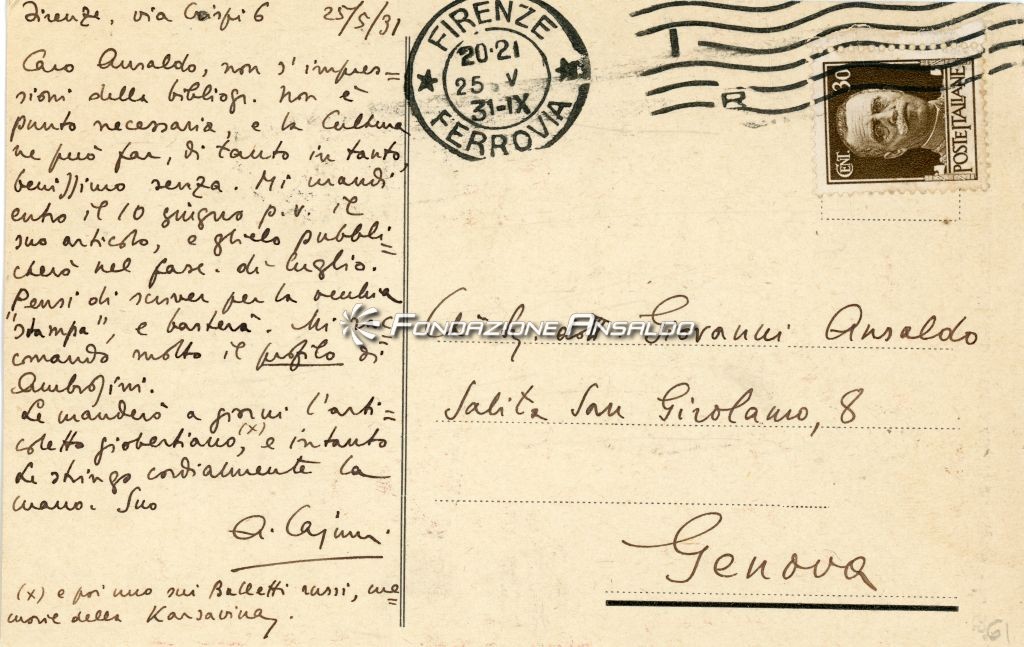 Firenze, via Crispi 6 25/5/31
Caro Ansaldo, non s'impres=
sioni della bibliogr. Non è
punto necessaria, e la Cultura
ne può far, di tanto in tanto,
benissimo senza. Mi mandi
entro il 10 giugno p.v. il
suo articolo, e glielo pubbli=
cherò nel fasc. di luglio.
Pensi di scriver per la vecchia
"Stampa", e basterà. Mi rac=
comando molto il profilo di
Ambrosini.
Le manderò a giorni l'arti=
coletto giobertiano,(x) e intanto
Le stringo cordialmente la
mano. Suo
A. Cajumi.
(x) e poi uno sui Balletti russi, me
morie della Karsavina.
FIRENZE
20·21
25 V
31-IX
FERROVIA
CENT 30
POSTE ITALIANE
Fondazione Ansaldo
dott Giovanni Ansaldo
Salita San Girolamo, 8
Genova